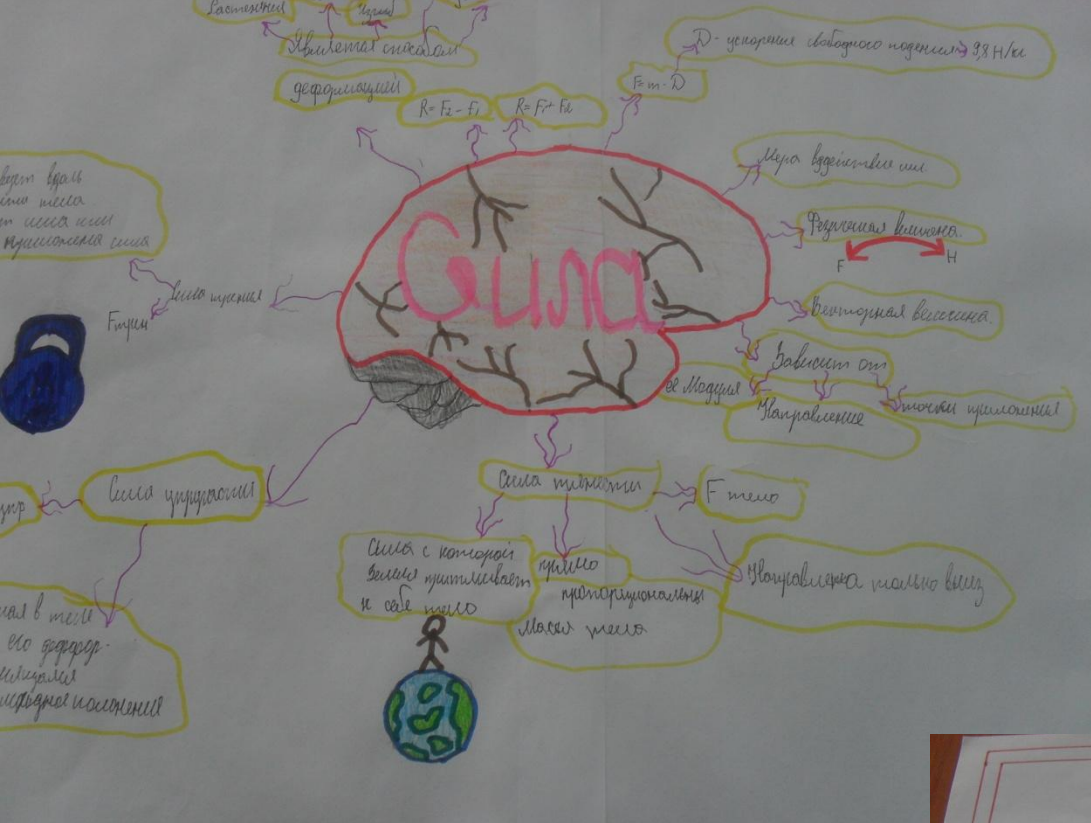 Растяжения
Является способом
деформацией
R=F₂-F₁
R=F₁+F₂
F=m·D
D-ускорения свободного падения 9,8 Н/кг
Мера
Физическая величина.
F
Н
Векторная величина.
Зависит от
её Модуля
Направление
точки приложения
Сила
вдоль
тела
приложена сила
Сила трения
Fтрен
Сила упругости
упр
в теле
его дефор-
положения
Сила тяжести
F тело
Сила с которой
Земля притягивает
к себе тело
прямо
пропорциональны
Масса тела
Направлена только вниз